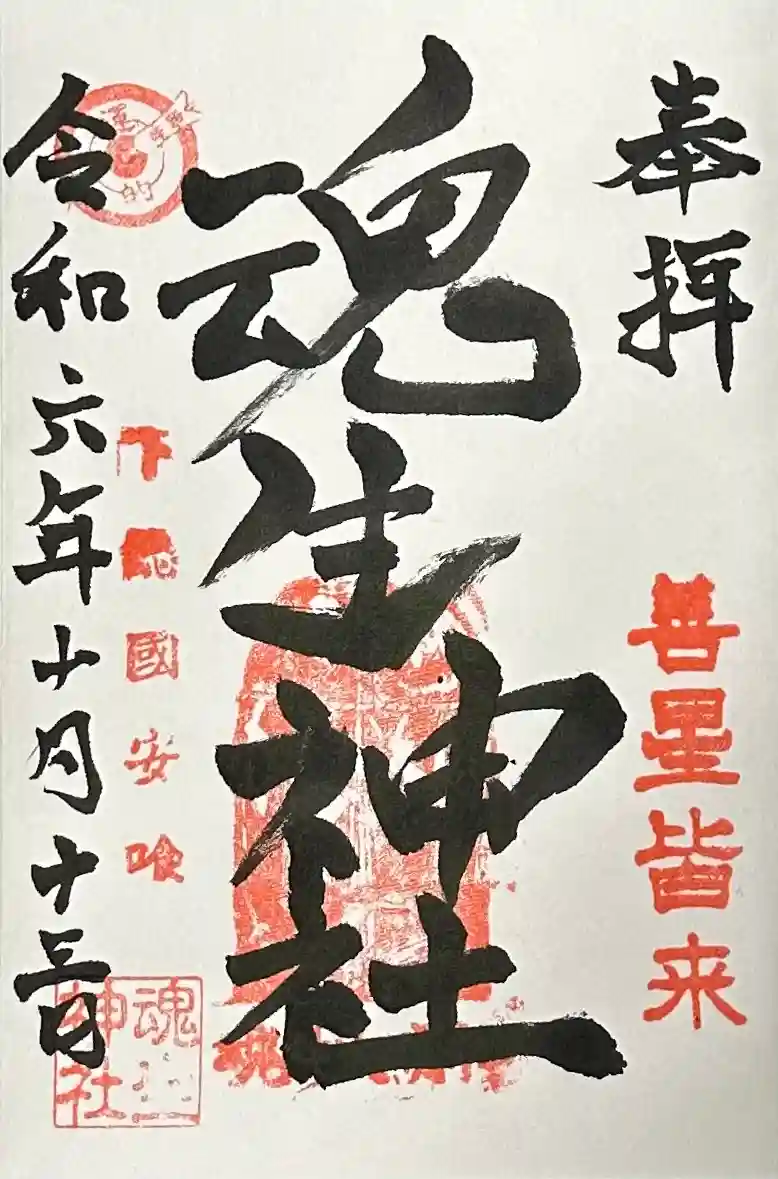 奉拝
善星皆来
魂生神社
令和六年十月十三日
國安喰
魂生神社